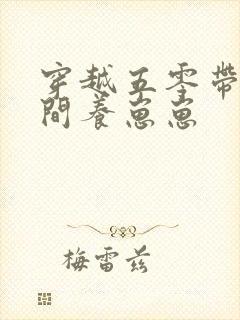 穿越五零帶
間養崽崽
梅雷茲